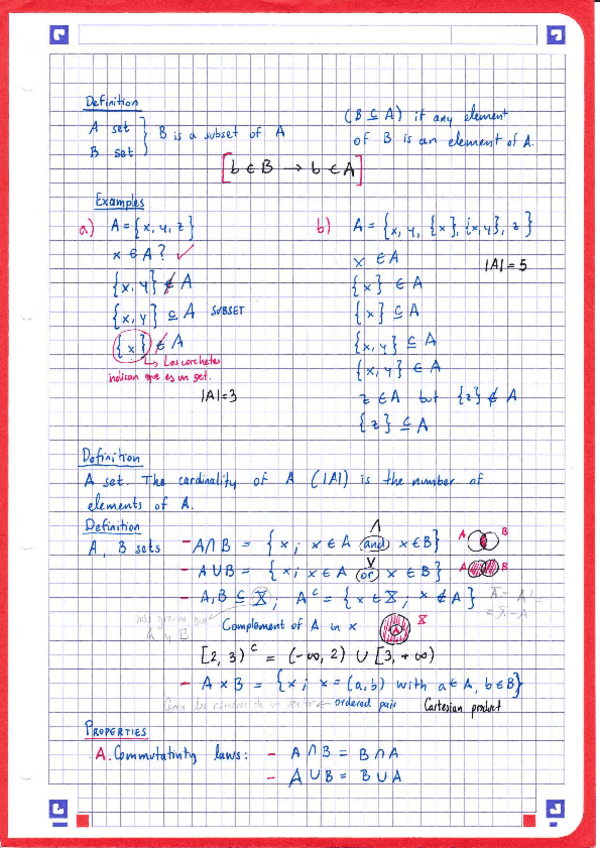 Definition
A set
B set
B is a subset of A
(B ⊆ A) if any element
of B is an element of A.
[b ∈ B → b ∈ A]
Examples
a) A = {x, y, z}
x ∈ A? ✓
{x, y} ∉ A
{x, y} ⊆ A SUBSET
{x} ∉ A
↳ Los corchetes
indican que es un set.
|A| = 3
b) A = {x, y, {x}, {x, y}, z}
x ∈ A
|A| = 5
{x} ∈ A
{x} ⊆ A
{x, y} ⊆ A
{x, y} ∈ A
z ∈ A but {z} ∉ A
{z} ⊆ A
Definition
A set. The cardinality of A (|A|) is the number of
elements of A.
Definition
A, B sets
∧
- A ∩ B = {x; x ∈ A and x ∈ B} A B
∨
- A ∪ B = {x; x ∈ A or x ∈ B} A B
- A, B ⊆ X; Aᶜ = {x ∈ X; x ∉ A}
más grande que
A y B
Complement of A in x A X
[2, 3)ᶜ = (-∞, 2) ∪ [3, +∞)
- A × B = {x; x = (a, b) with a ∈ A, b ∈ B}
← ordered pair Cartesian product
PROPERTIES
A. Commutatinty laws: - A ∩ B = B ∩ A
- A ∪ B = B ∪ A